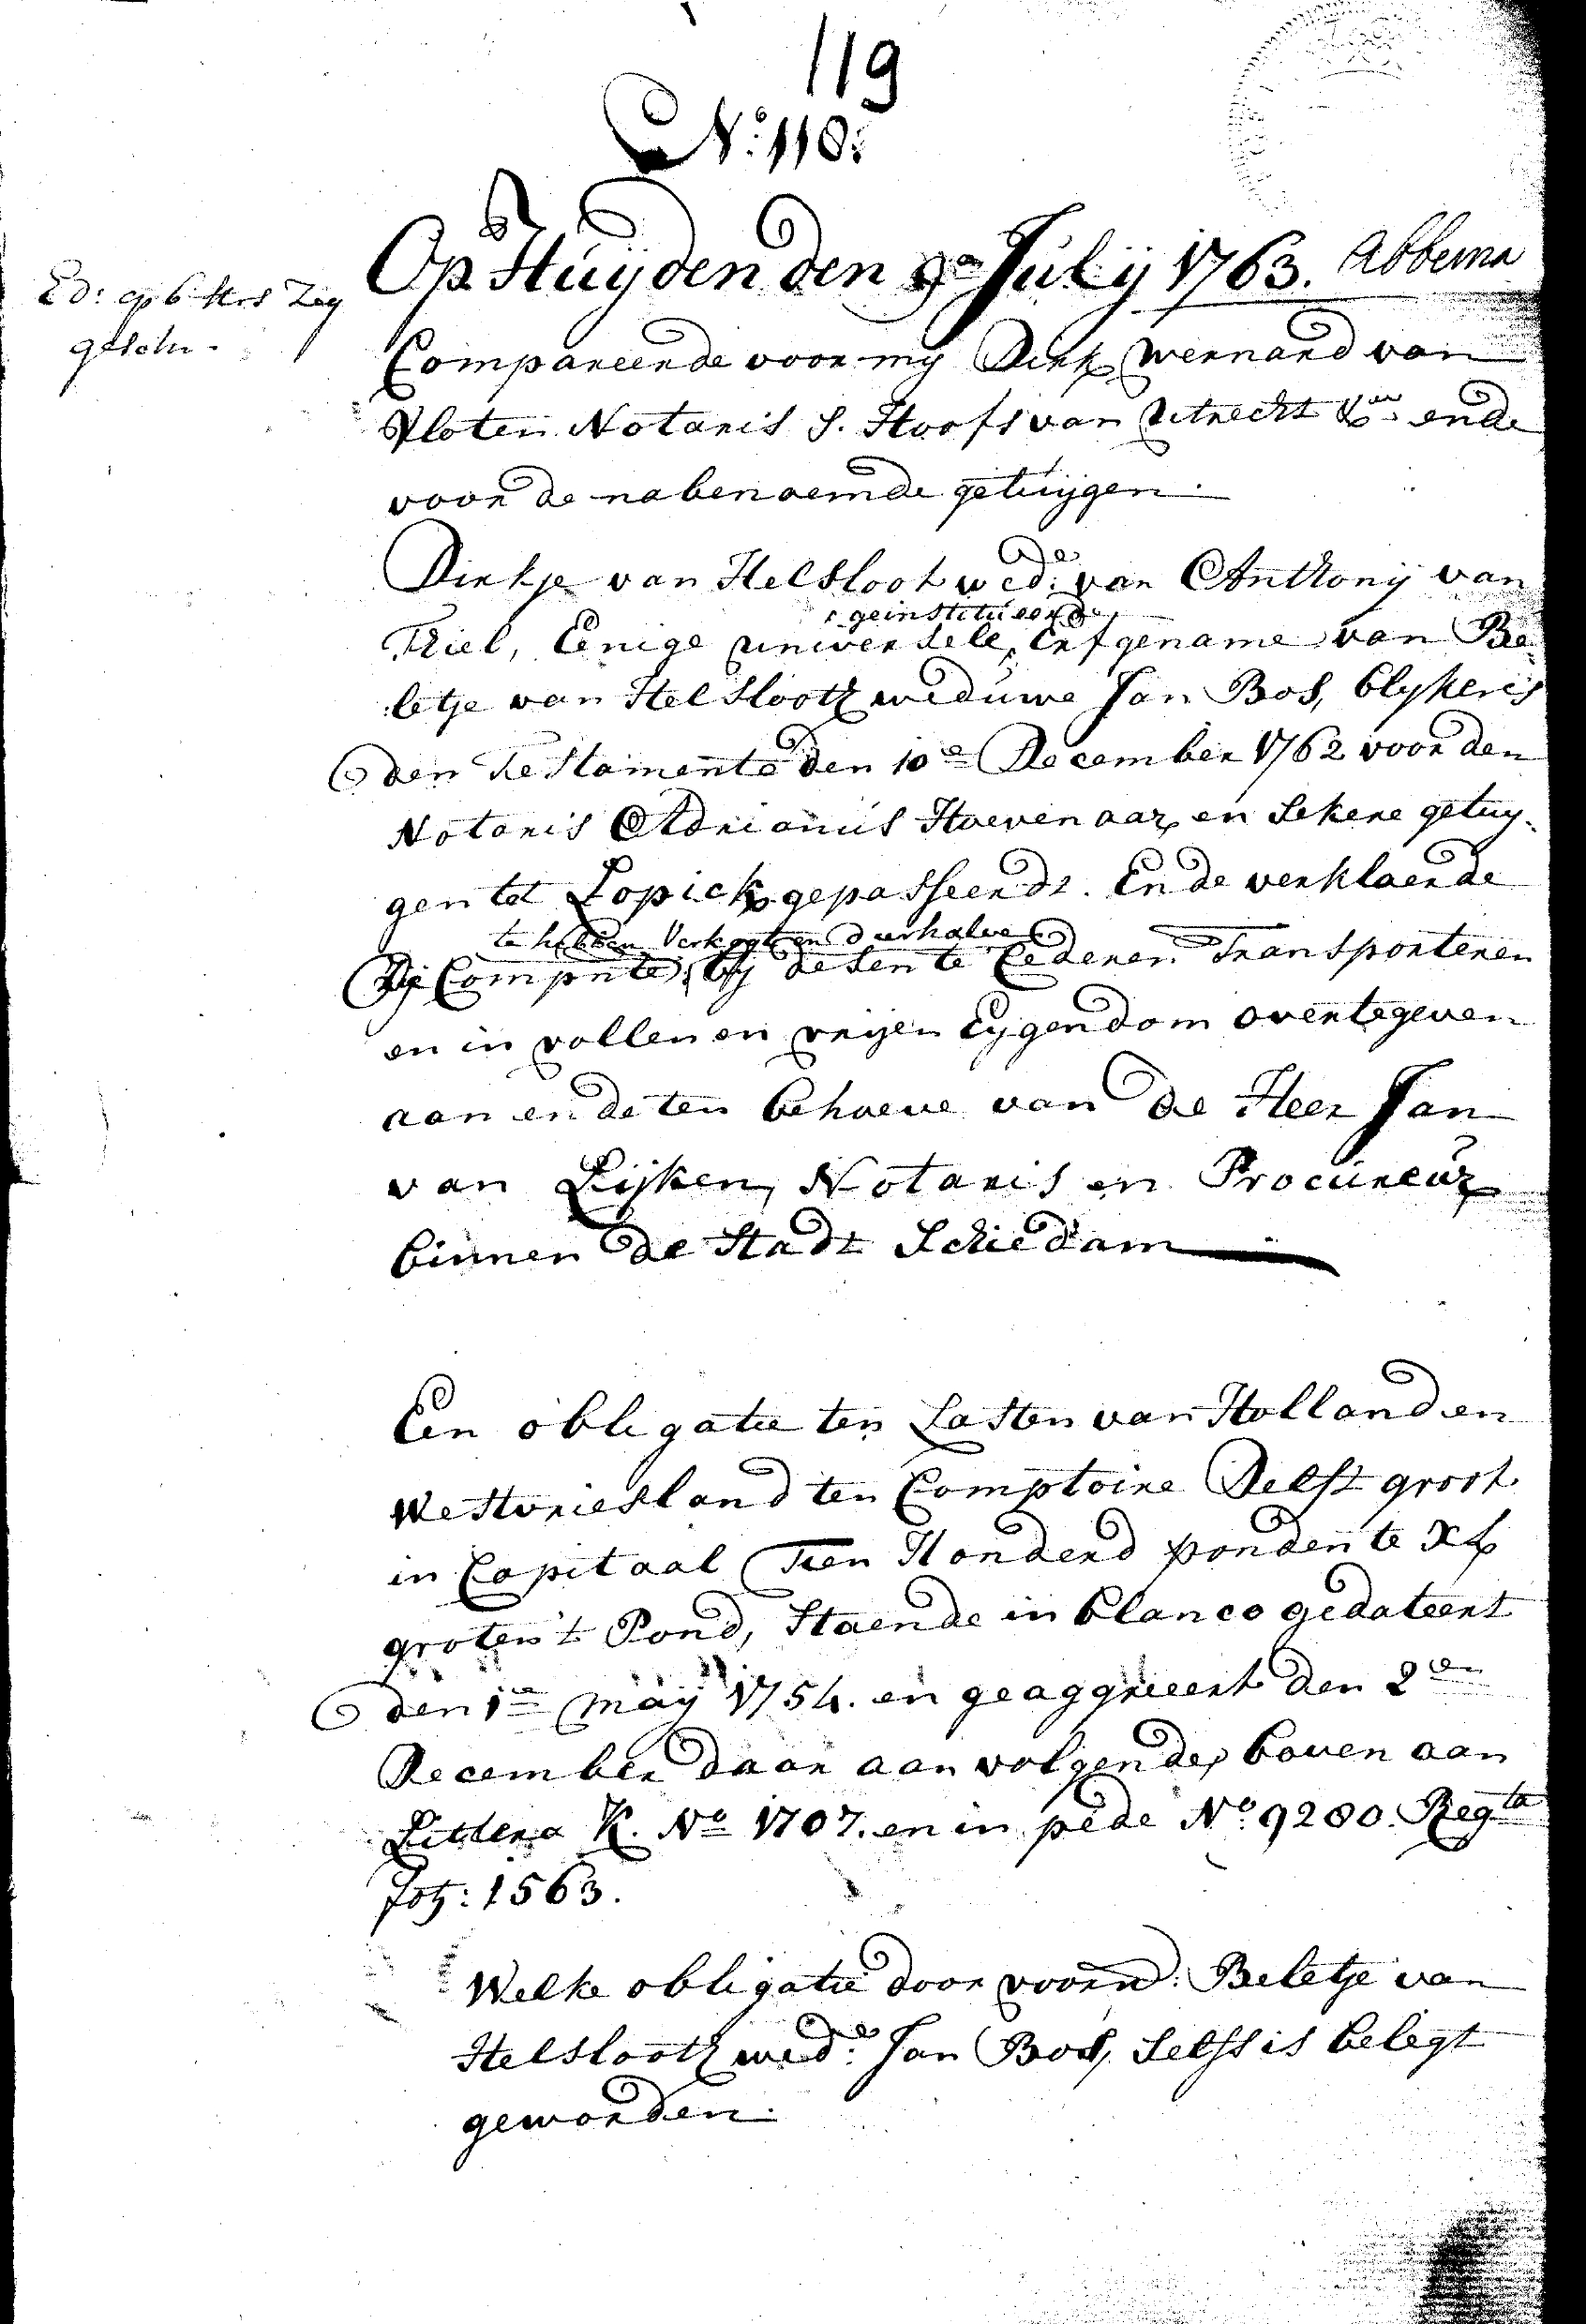 119
No: 118:
Op Huyden den 9en July 1763. Abbema
Ed: op 6 strs Zeg
geschr.
Compareerde voor my Dirk Wernard van
Vloten Notaris s. Hoofs van Utrecht &en ende
voor de nabenoemde getuijgen.
Dirkje van Helsloot wede: van Anthonij van
geinstitueerde
Thiel, Eenige universele Erfgename van Be-
letje van Helslooth weduwe Jan Bos, blykens
den Testamente den 10e December 1762 voor den
Notaris Adrianus Hoevenaar en sekere getuy-
gen tot Lopick gepasseerdt. Ende verklaerde
te hebben Verkogt en derhalve
Zij Compnte, by desen te Cederen Transporteren
en in vollen en vrijen Eygendom overtegeven
aan ende ten behoeve van de Heer Jan
van Rijken, Notaris en Procureur
binnen de Stadt Schiedam
Een obligatie ten Lasten van Holland en
Westvriesland ten Comptoire Delft groot
in Capitaal Tien Honderd ponden te XL
groten 't Pond, Staende in blanco gedateert
den 1e may 1754. en geaggreeert den 2en
December daar aan volgende, boven aan
Littera K. No 1707. en in pede No: 9280. Regta
fol: 1563.
Welke obligatie door voorn: Beletje van
Helslooth wede: Jan Bos, selfs is belegt
geworden.